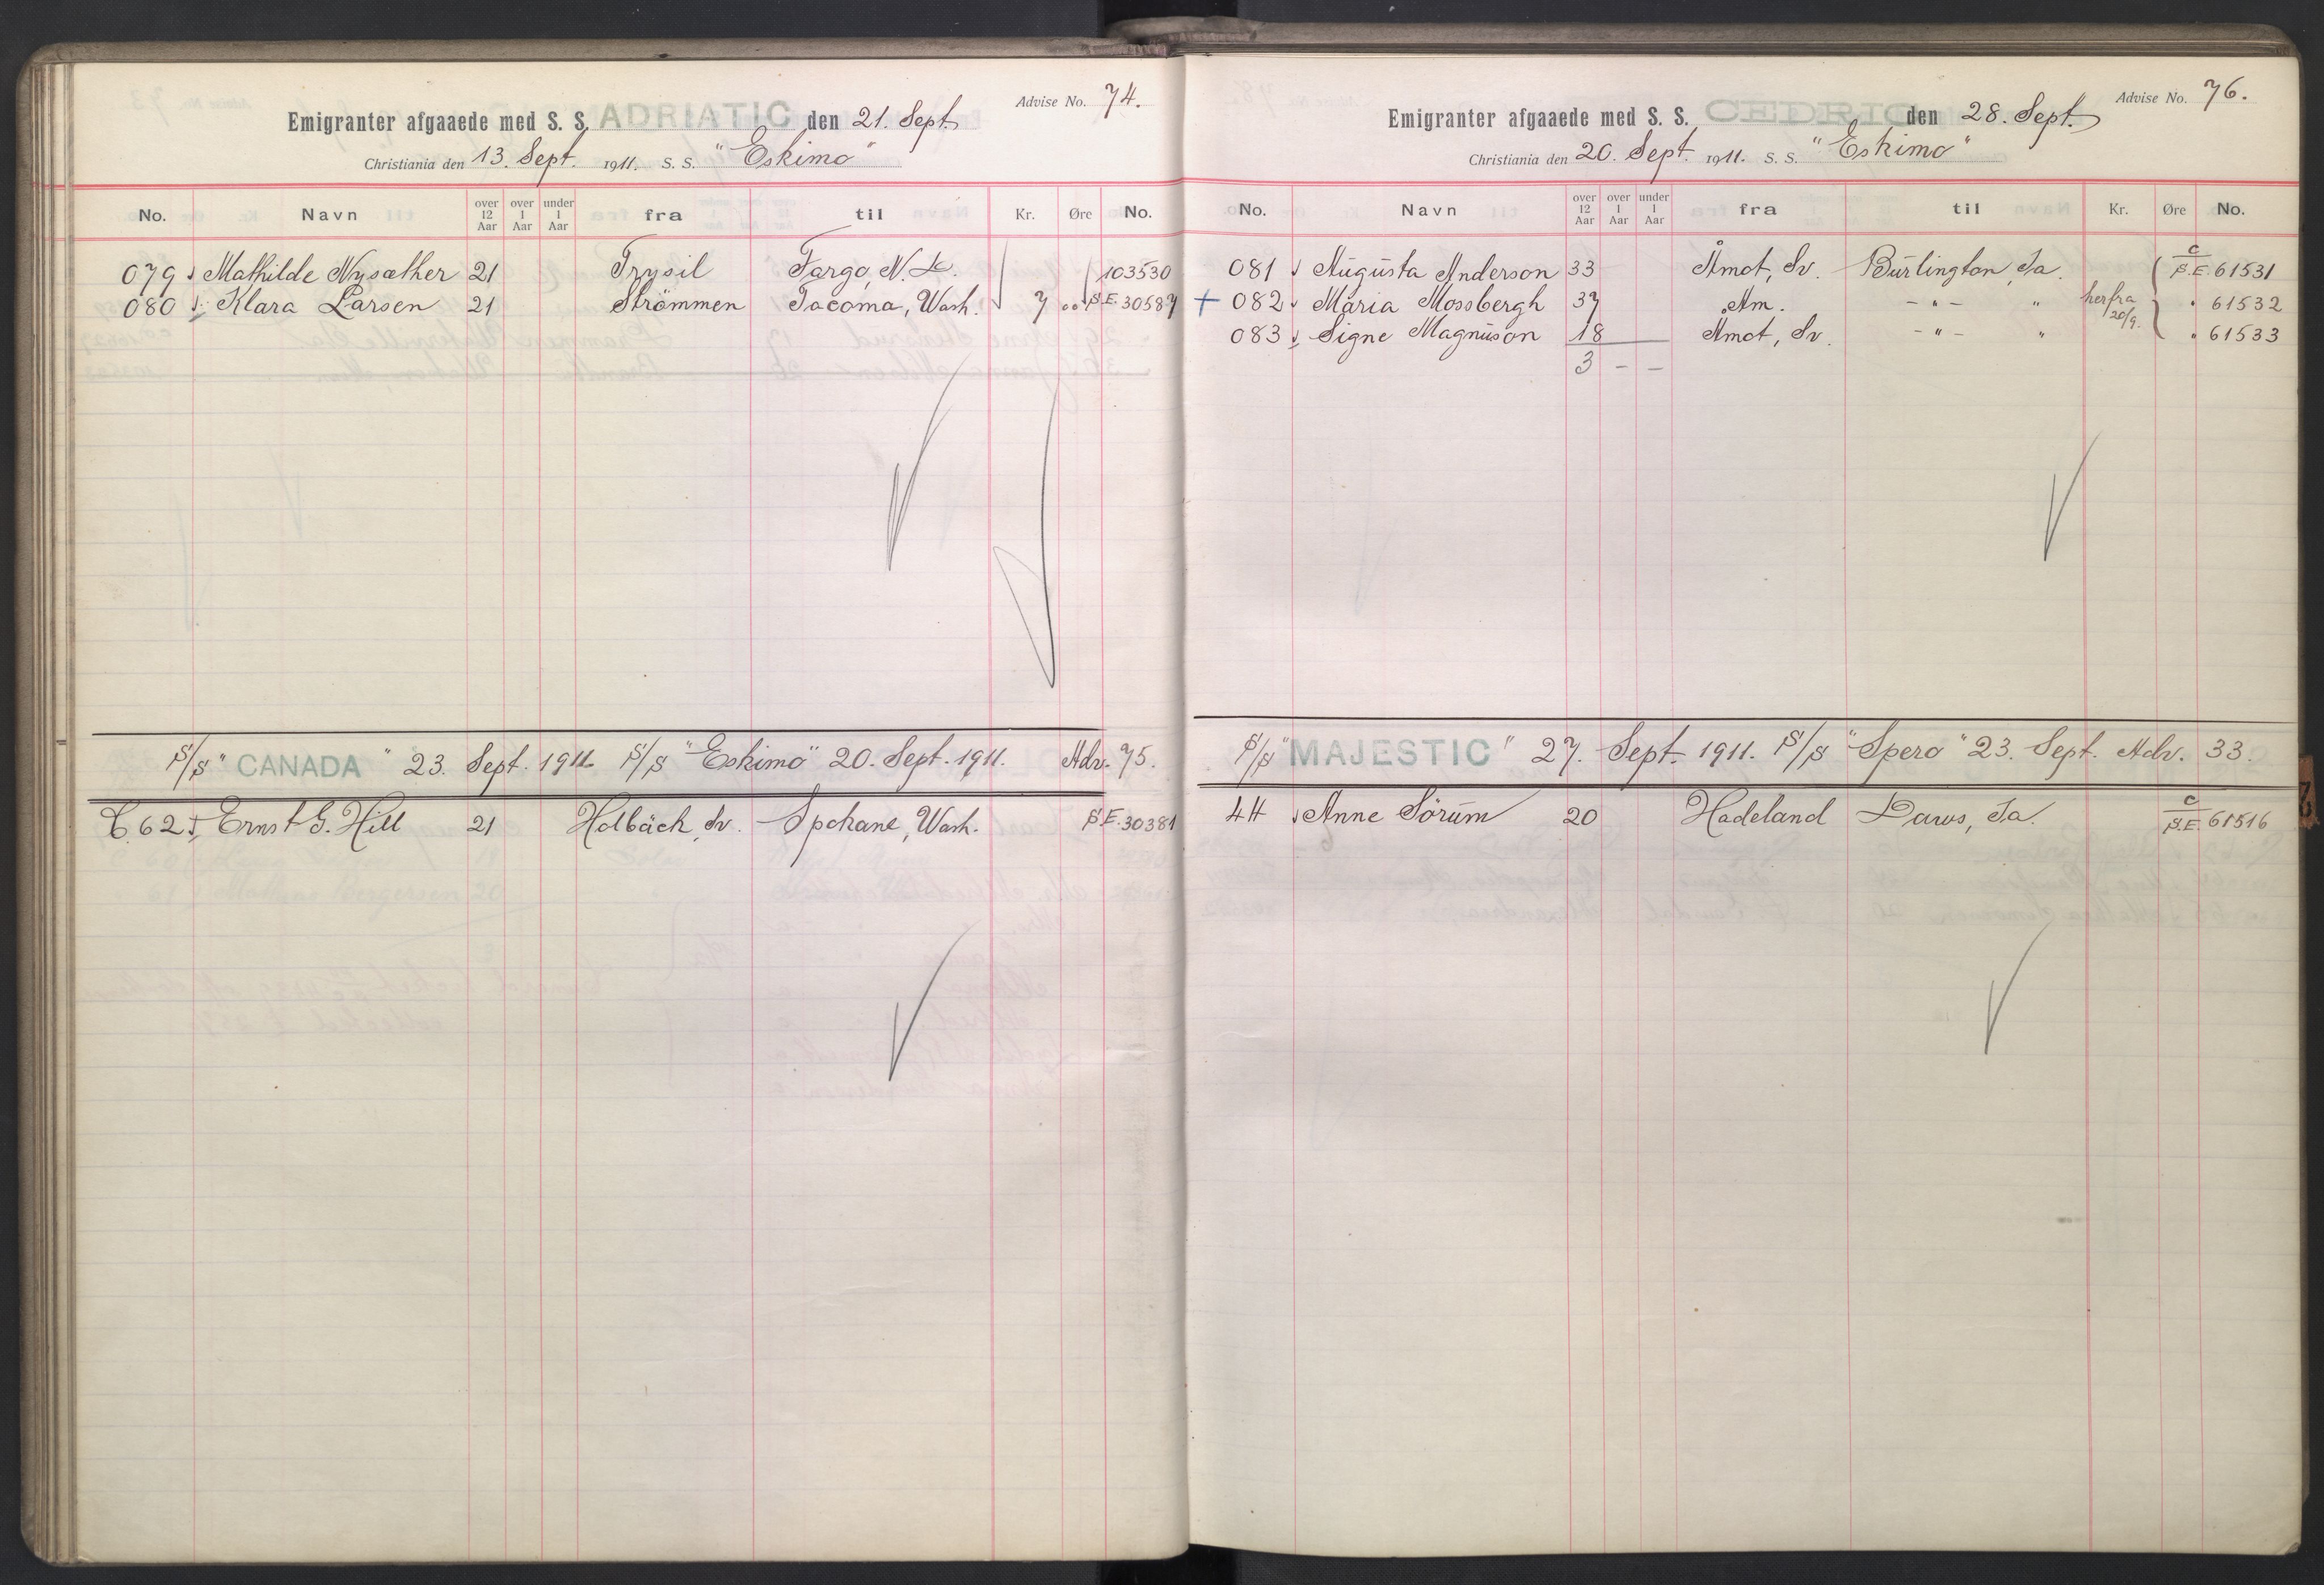 Advise No. 74.
Emigranter afgaaede med S. S. ADRIATIC den 21. Sept.
Christiania den 13. Sept. 1911. S. S. "Eskimo"
No. Navn over 12 Aar over 1 Aar under 1 Aar fra til Kr. Øre No.
079 Mathilde Nysæther 21 Trysil Fargo, N. D. 103530
080 Klara Larsen 21 Strömmen Tacoma, Wash. 7 S.E. 30587
S/S "CANADA" 23. Sept. 1911. S/S "Eskimo" 20. Sept. 1911. Adv. 75.
C. 62 Ernst G. Hill 21 Holbäck, Sv. Spokane, Wash. S.E. 30381
Advise No. 76.
Emigranter afgaaede med S. S. CEDRIC den 28. Sept.
Christiania den 20. Sept. 1911. S. S. "Eskimo"
No. Navn over 12 Aar over 1 Aar under 1 Aar fra til Kr. Øre No.
081 Augusta Anderson 33 Åmot, Sv. Burlington, Ia. C S.E. 61531
+ 082 Maria Mossbergh 37 Am. - " - " herfra 20/9. " 61532
083 Signe Magnuson 18 Åmot, Sv. - " - " " 61533
3 - -
S/S "MAJESTIC" 27. Sept. 1911. S/S "Spero" 23. Sept. Adv. 33.
44 Anne Sörum 20 Hadeland Daws, Ia. C S.E. 61516